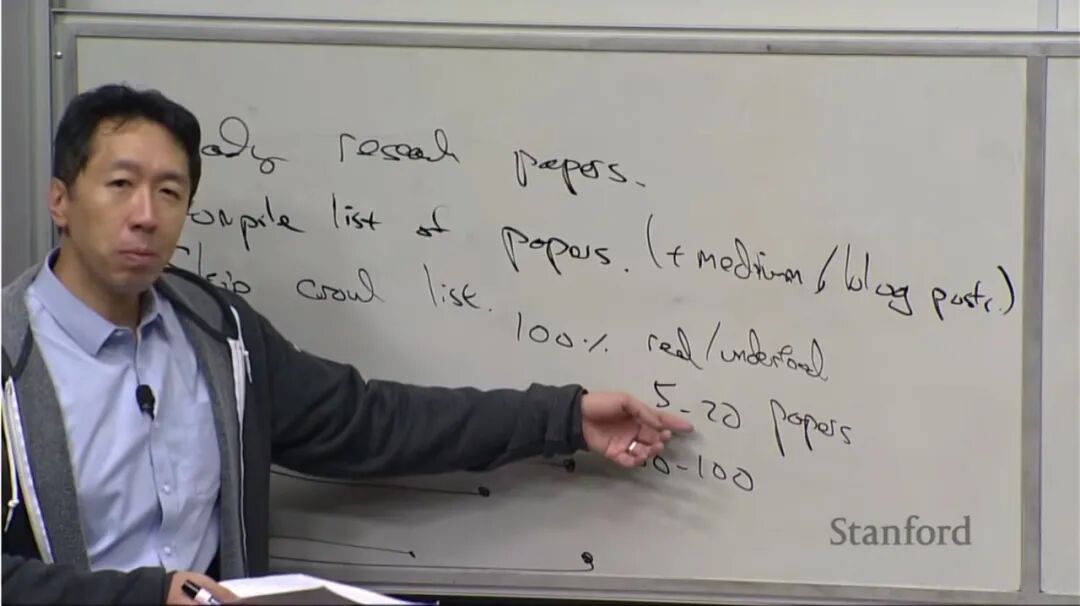 ady research papers.
ompile list of papers. (+ medium / blog posts.)
Skip around list.
100% read/understood
5-20 papers
0-100
Stanford